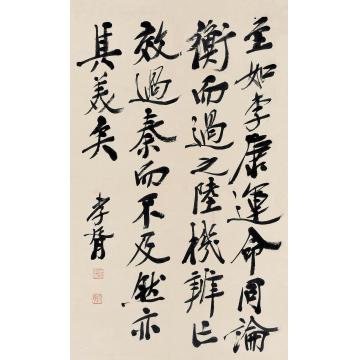 至如李康運命同論
衡而過之陸機辨亡
效過秦而不及然亦
其美矣
孝胥